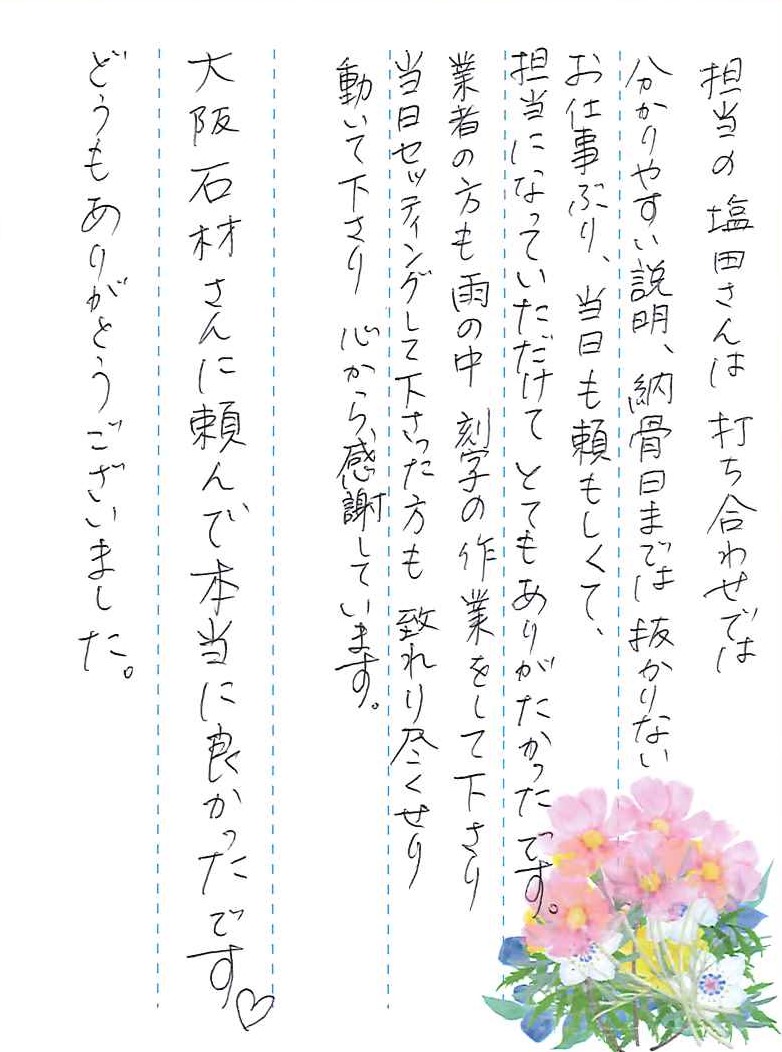 担当の塩田さんは 打ち合わせでは
分かりやすい説明、納骨日までは 抜かりない
お仕事ぶり、当日も頼もしくて、
担当になっていただけて とてもありがたかったです。
業者の方も雨の中 刻字の作業をして下さり
当日セッティングして下さった方も 致れり尽くせり
動いて下さり 心から、感謝しています。
大阪石材さんに頼んで本当に良かったです♡
どうもありがとうございました。